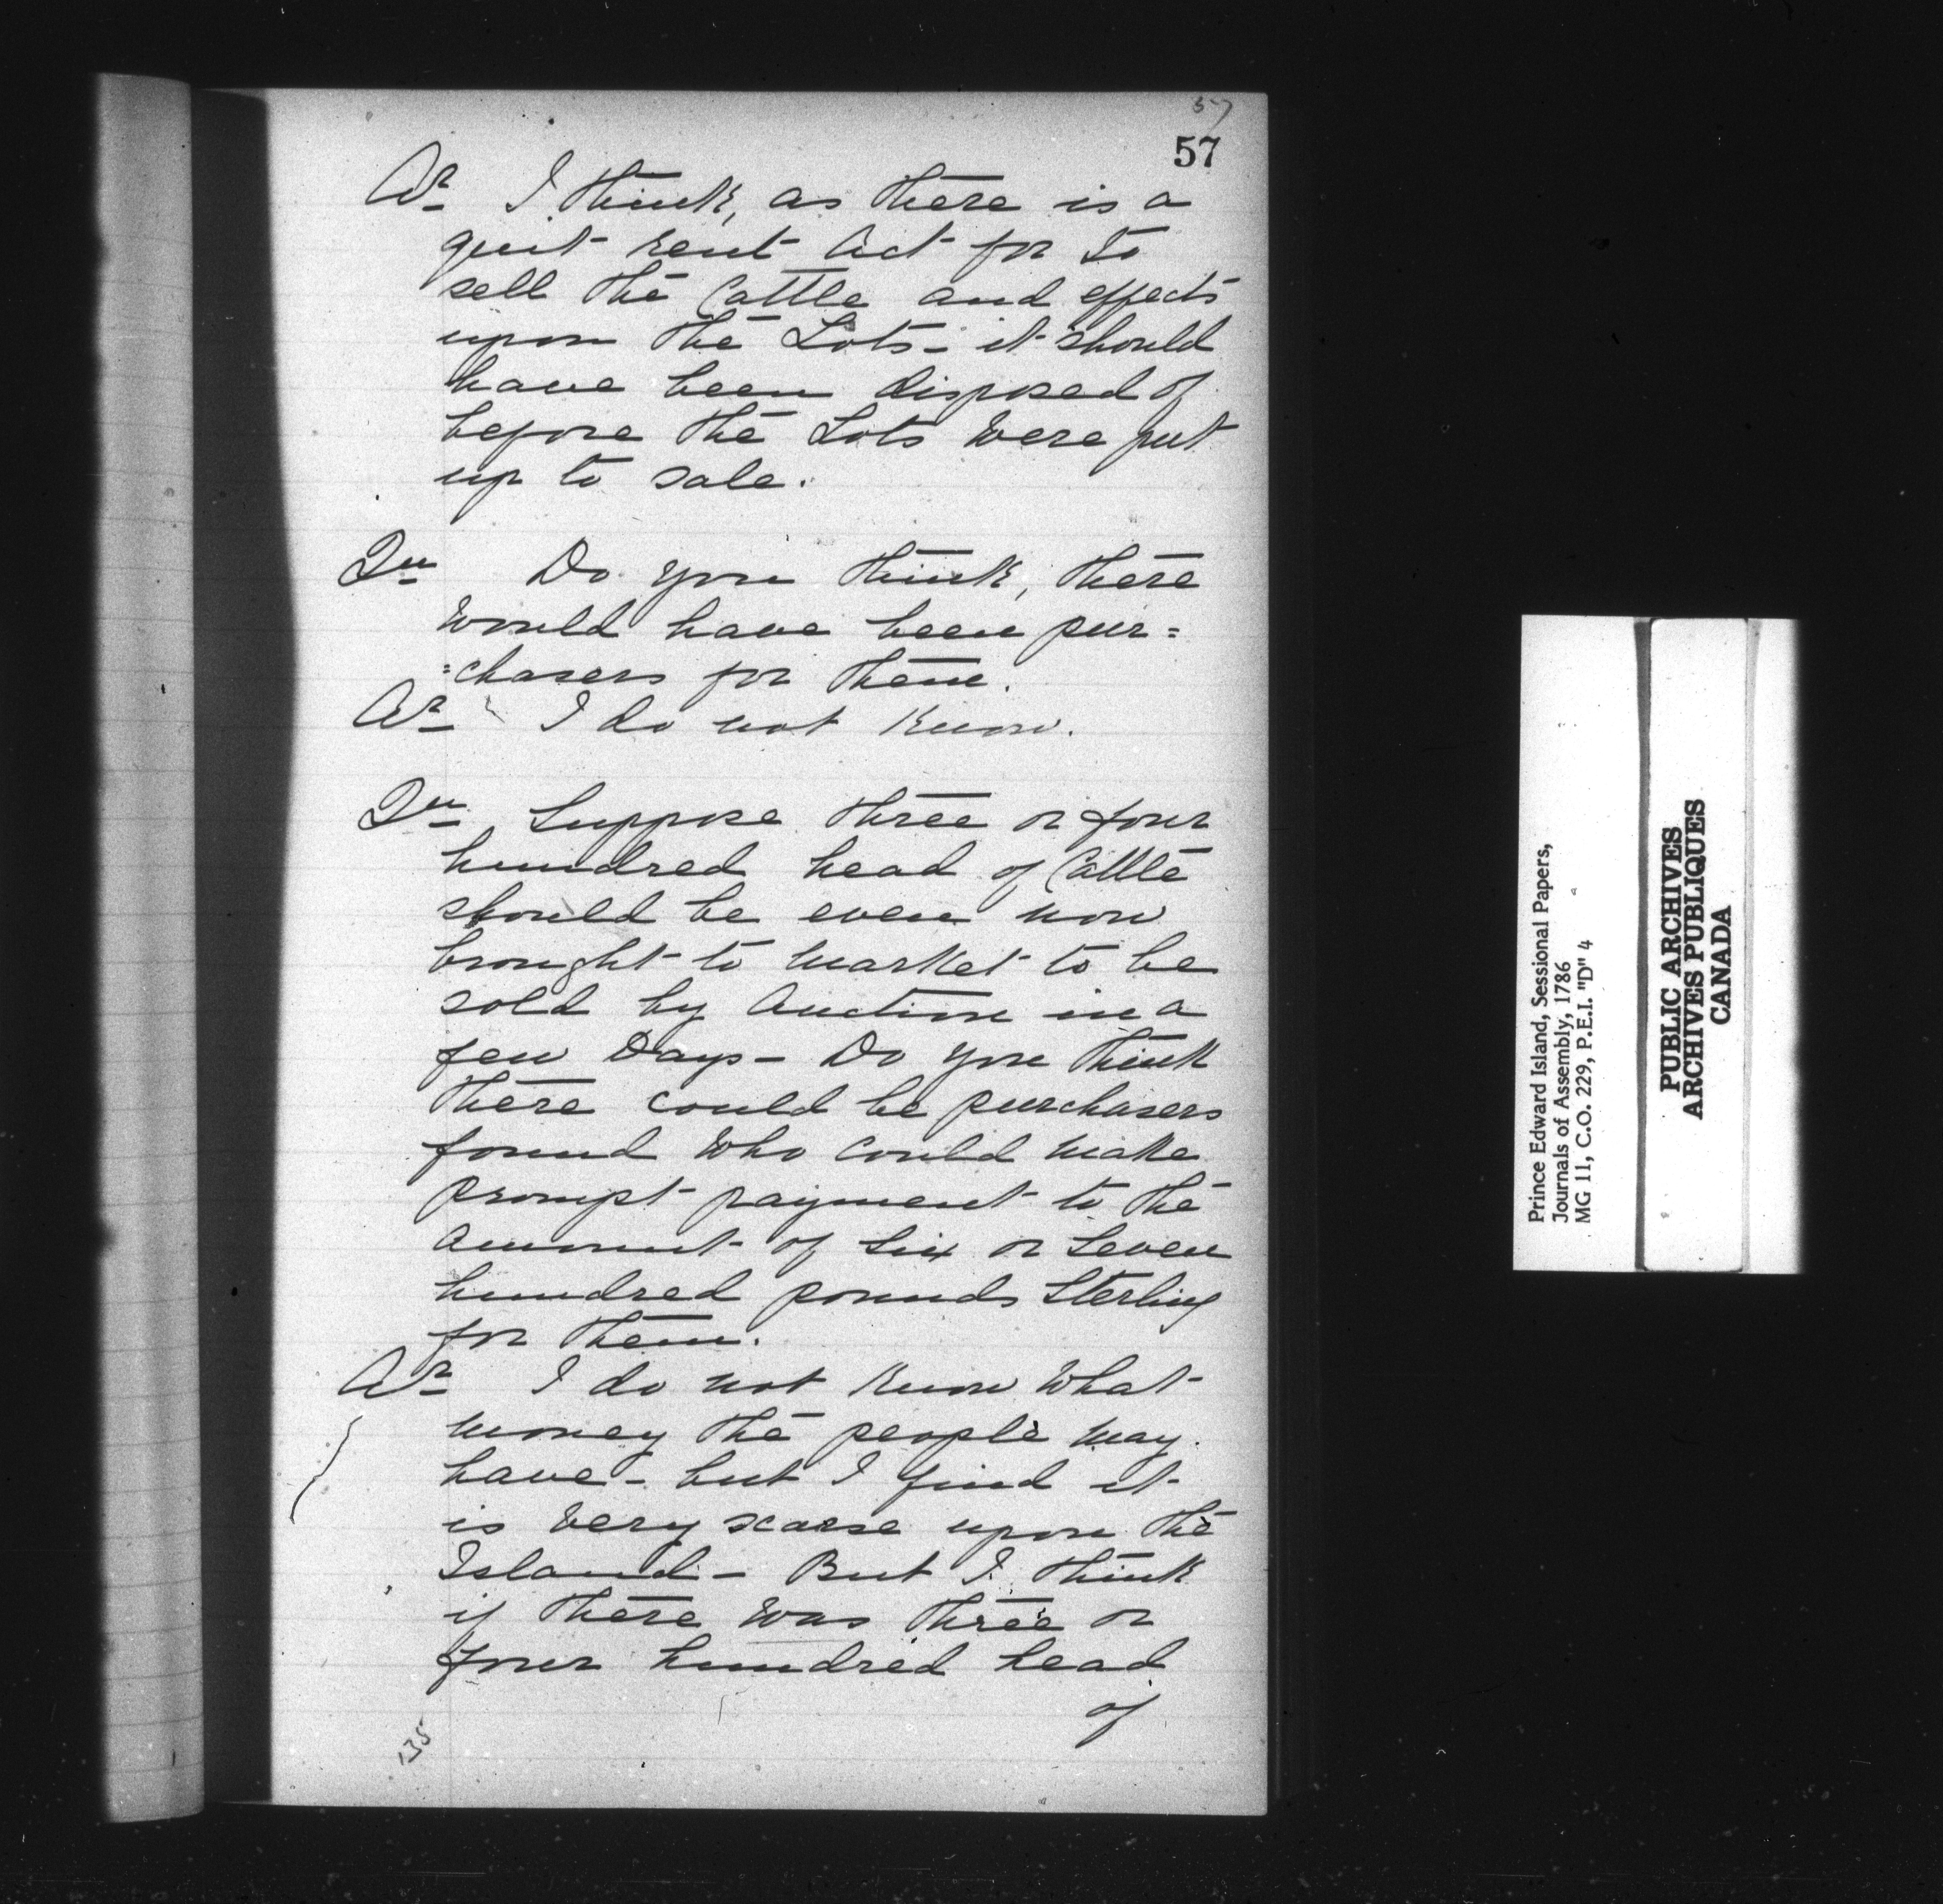 57
57
Ar I think, as there is a
quit rent Act for to
sell the Cattle and effects
upon the Lots - it should
have been disposed of
before the Lots were put
up to sale.
Qu Do you think, there
would have been pur=
=chasers for them.
Ar I do not know.
Qu Suppose three or four
hundred head of Cattle
should be even now
brought to market to be
sold by Auction in a
few Days - Do you think
there could be purchasers
found who could make
prompt payment to the
amount of Six or Seven
hundred pounds Sterling
for them.
Ar I do not know what
money the people may
have - but I find it
is very scarse upon the
Island - But I think
if there was three or
four hundred head
of
135
Prince Edward Island, Sessional Papers,
Journals of Assembly, 1786
MG 11, C.O. 229, P.E.I. "D" 4
PUBLIC ARCHIVES
ARCHIVES PUBLIQUES
CANADA